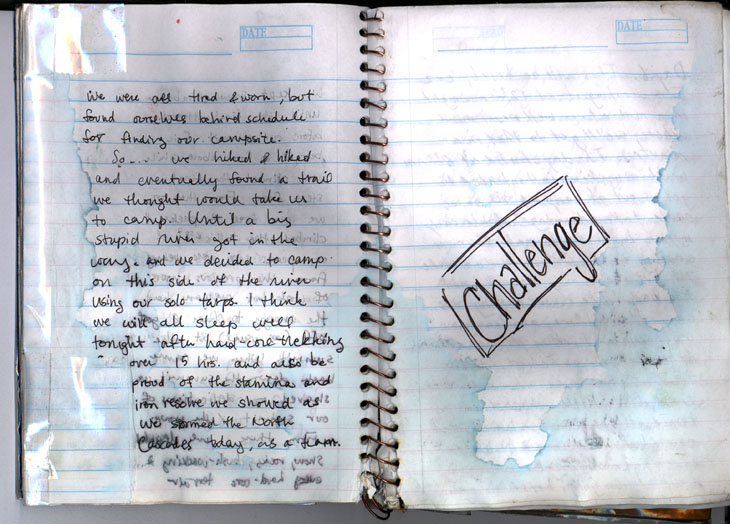 DATE
we were all tired & worn, but
found ourselves behind schedule
for finding our campsite.
So... we hiked & hiked
and eventually found a trail
we thought would take us
to camp. Until a big
stupid river got in the
way. and we decided to camp
on this side of the river
using our solo tarps. I think
we will all sleep well
tonight after hard-core trekking
over 15 hrs. and also be
proud of the stamina and
iron resolve we showed as
we stormed the North
Cascades today, as a team.
DATE
Challenge